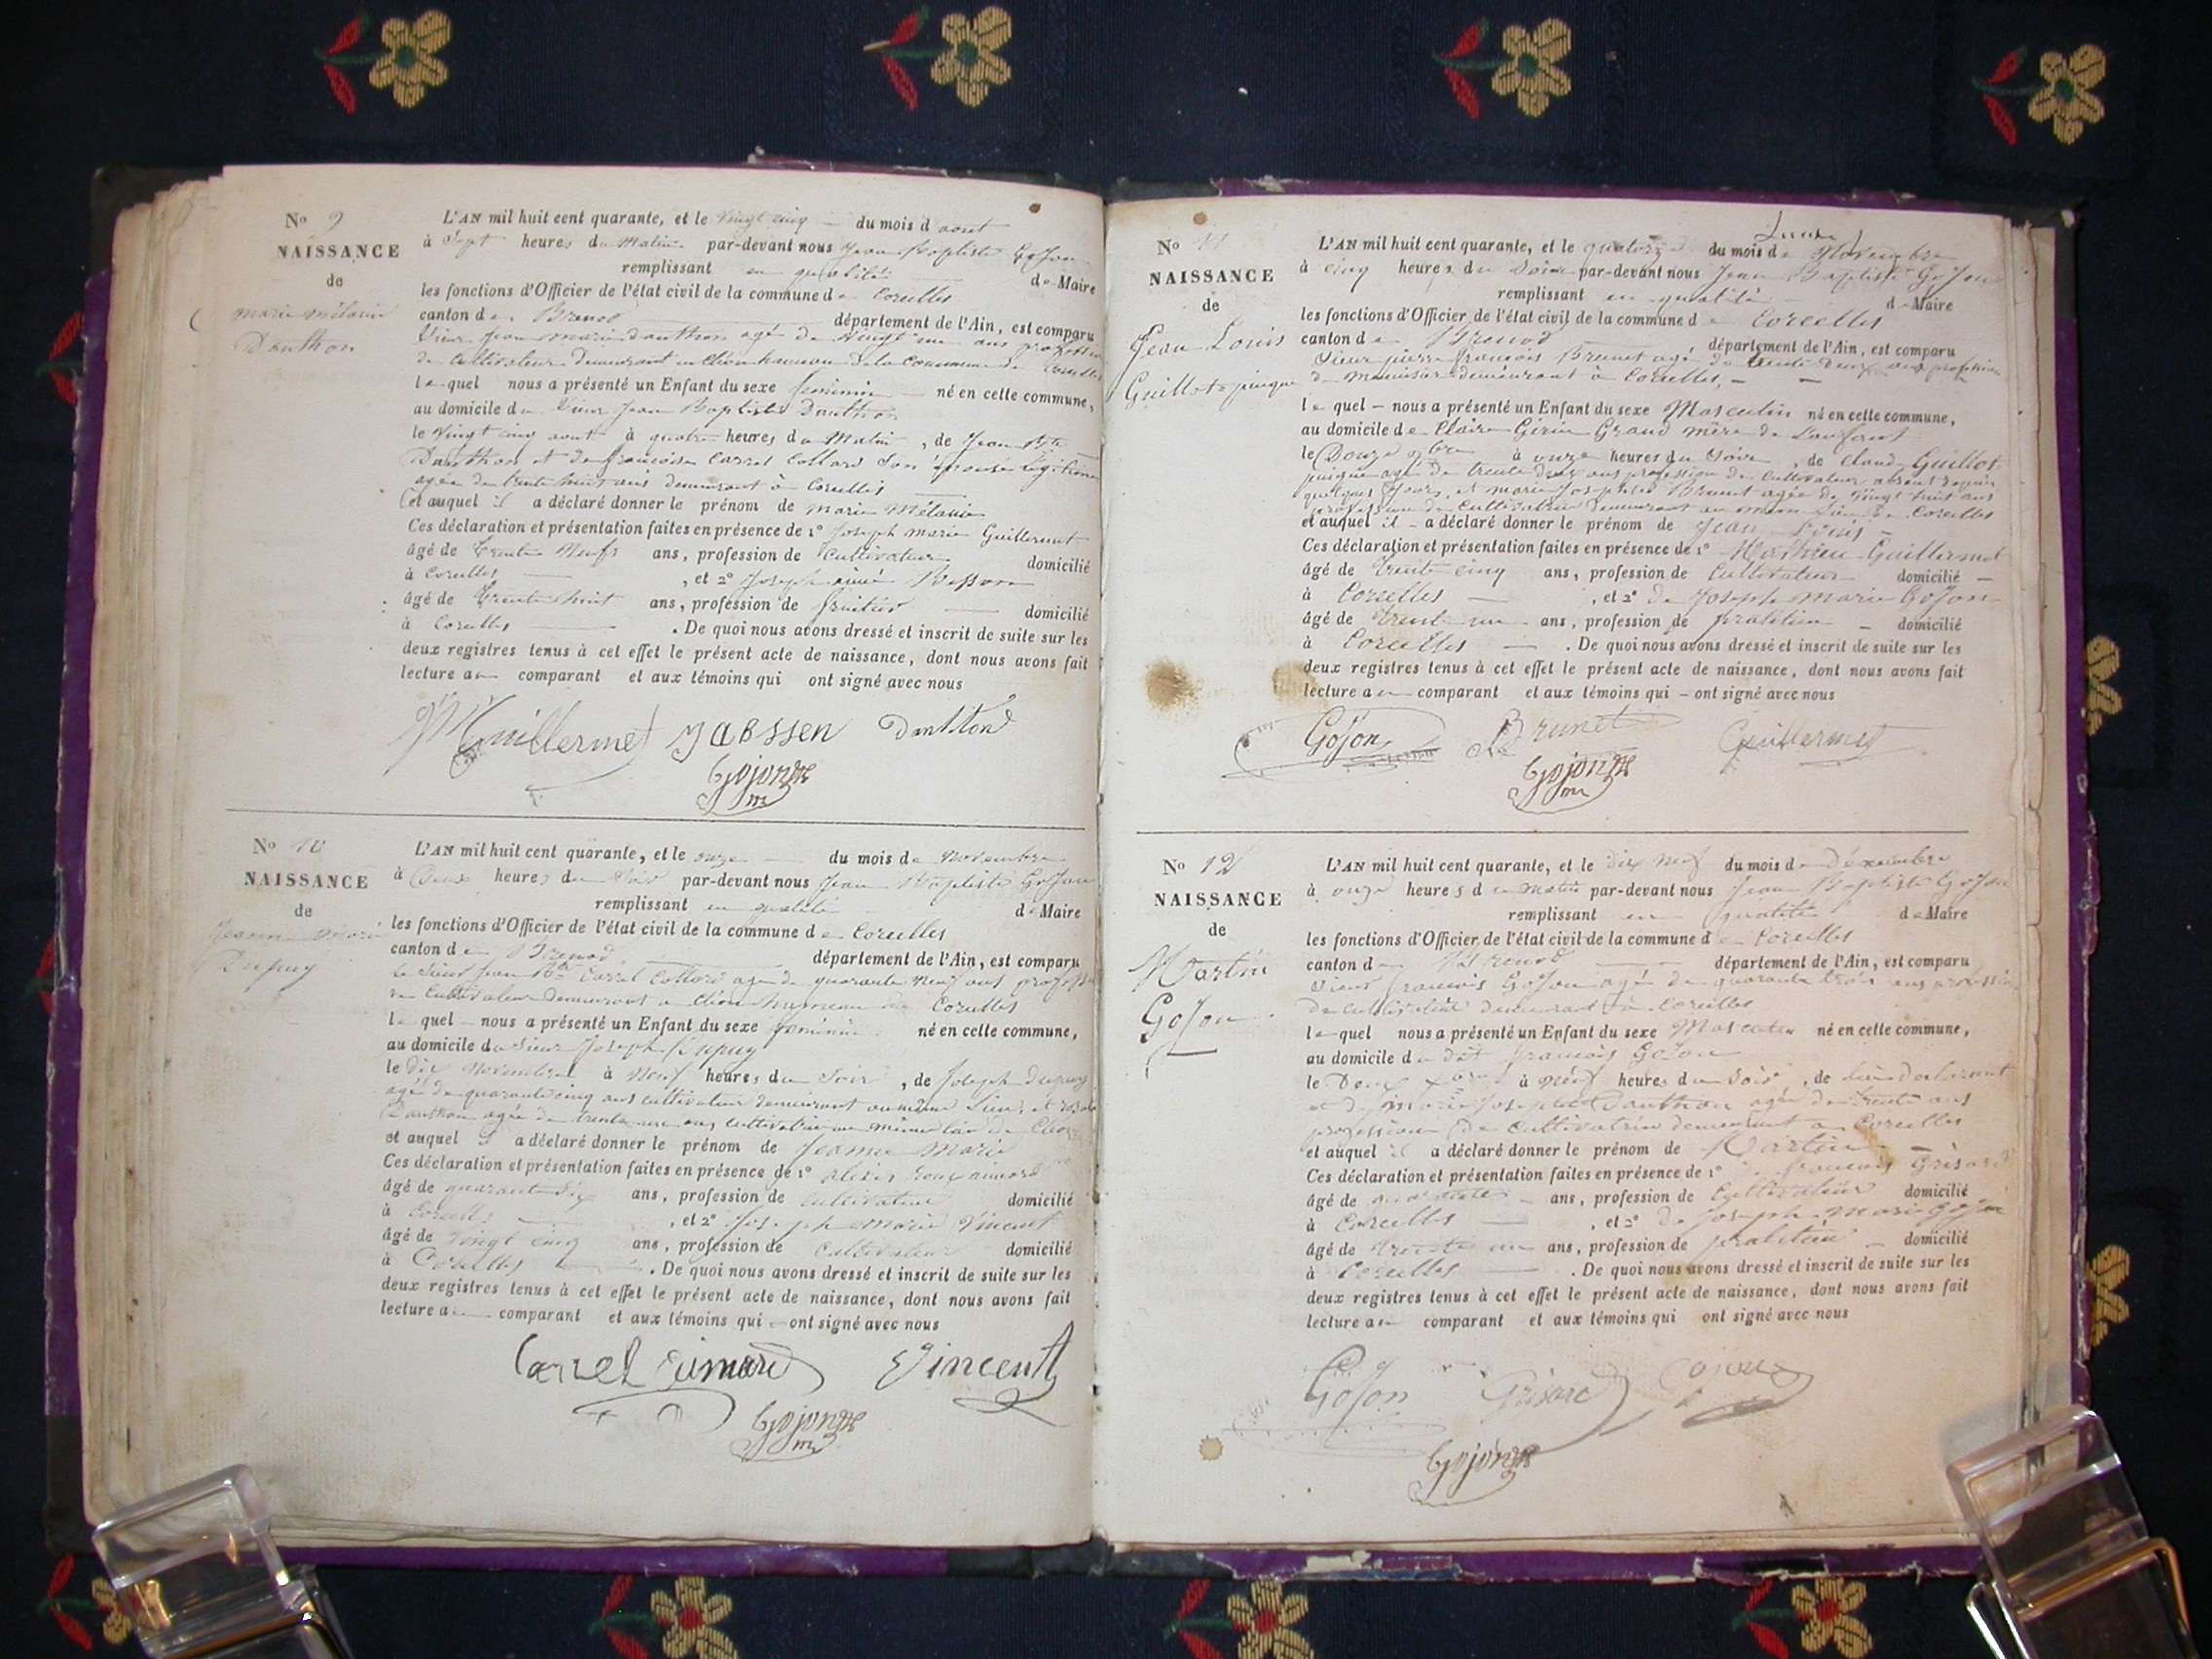 No 9
NAISSANCE
de
marie mélanie
Danthon
L'AN mil huit cent quarante, et le Vingt cinq du mois d'aout
à Sept heures du Matin par-devant nous Jean Baptiste GoJon
remplissant en qualité de Maire
les fonctions d'Officier de l'état civil de la commune de Corcelles
canton de Brenod département de l'Ain, est comparu
Sieur Jean Marie danthon agé de Vingt un ans profession
de Cultivateur Demeurant a Cléon hameau de la Commune de Corcelles
lequel nous a présenté un Enfant du sexe féminin né en cette commune,
au domicile du Sieur Jean Baptiste Danthon
le Vingt cinq aout à quatre heures du Matin, de Jean Bte
Danthon et de françoise Carrel Collard Son épouse légitime
agée de trente huit ans demeurant à Corcelles
et auquel il a déclaré donner le prénom de marie Mélanie
Ces déclaration et présentation faites en présence de 1° Joseph marie Guillermet
âgé de trente Neufs ans, profession de Cultivateur domicilié
à Corcelles, et 2° Joseph aimé Besson
âgé de Trente huit ans, profession de fruitier domicilié
à Corcelles. De quoi nous avons dressé et inscrit de suite sur les
deux registres tenus à cet effet le présent acte de naissance, dont nous avons fait
lecture au comparant et aux témoins qui ont signé avec nous
Guillermet Danthon
Gojon
No 10
NAISSANCE
de
Jeanne Marie
Dupuy
L'AN mil huit cent quarante, et le onze du mois de Novembre
à Deux heures du Soir par-devant nous Jean Baptiste GoJon
remplissant en qualité de Maire
les fonctions d'Officier de l'état civil de la commune de Corcelles
canton de Brenod département de l'Ain, est comparu
le Sieur Jean Bte Carrel Collard agé de quarante Neuf ans profession
de Cultivateur demeurant a Cléon hameau de Corcelles
lequel nous a présenté un Enfant du sexe féminin né en cette commune,
au domicile du Sieur Joseph Dupuy
le Dix Novembre à Neuf heures du Soir, de Joseph dupuy
agé de quarante cinq ans cultivateur demeurant au même Lieu, et
Danthon agée de trente ans cultivatrice au même lieu de
et auquel il a déclaré donner le prénom de Jeanne Marie
Ces déclaration et présentation faites en présence de 1° alexis
âgé de quarante Six ans, profession de cultivateur domicilié
à Corcelles, et 2° Joseph Marie Vincent
âgé de Vingt cinq ans, profession de Cultivateur domicilié
à Corcelles. De quoi nous avons dressé et inscrit de suite sur les
deux registres tenus à cet effet le présent acte de naissance, dont nous avons fait
lecture au comparant et aux témoins qui ont signé avec nous
Carrel Vincent
Gojon
No 11
NAISSANCE
de
Jean Louis
Guillot pingue
L'AN mil huit cent quarante, et le quatorze du mois de Novembre
à cinq heures du Soir par-devant nous Jean Baptiste GoJon
remplissant en qualité de Maire
les fonctions d'Officier de l'état civil de la commune de Corcelles
canton de Brenod département de l'Ain, est comparu
Sieur pierre françois Brunet agé de trente Deux ans profession
de Menuisier demeurant à Corcelles
lequel nous a présenté un Enfant du sexe Masculin né en cette commune,
au domicile de Claire Girin Grand mère de l'enfant
le Douze 9bre à onze heures du Soir, de Claude Guillot
pingue agé de trente deux ans profession de Cultivateur absent depuis
quelques Jours, et marie Josephte Brunet agée de Vingt huit ans
profession de Cultivatrice demeurant au même Lieu de Corcelles
et auquel il a déclaré donner le prénom de Jean Louis
Ces déclaration et présentation faites en présence de 1° Mathieu Guillermet
âgé de trente cinq ans, profession de Cultivateur domicilié
à Corcelles, et 2° de Joseph marie GoJon
âgé de trente un ans, profession de praticien domicilié
à Corcelles. De quoi nous avons dressé et inscrit de suite sur les
deux registres tenus à cet effet le présent acte de naissance, dont nous avons fait
lecture au comparant et aux témoins qui ont signé avec nous
GoJon Brunet Guillermet
Gojon
No 12
NAISSANCE
de
Martin
GoJon
L'AN mil huit cent quarante, et le dix neuf du mois de Décembre
à onze heures du matin par-devant nous Jean Baptiste GoJon
remplissant en qualité de Maire
les fonctions d'Officier de l'état civil de la commune de Corcelles
canton de Brenod département de l'Ain, est comparu
Sieur françois GoJon agé de quarante trois ans profession
de cultivateur demeurant à Corcelles
lequel nous a présenté un Enfant du sexe Masculin né en cette commune,
au domicile du dit françois GoJon
le à neuf heures du Soir, de lui declarant
et de marie Josephte Danthon agée de trente ans
profession de Cultivatrice demeurant a Corcelles
et auquel il a déclaré donner le prénom de Martin
Ces déclaration et présentation faites en présence de 1° françois Grisard
âgé de quarante ans, profession de Cultivateur domicilié
à Corcelles, et 2° de Joseph Marie GoJon
âgé de trente un ans, profession de praticien domicilié
à Corcelles. De quoi nous avons dressé et inscrit de suite sur les
deux registres tenus à cet effet le présent acte de naissance, dont nous avons fait
lecture au comparant et aux témoins qui ont signé avec nous
GoJon Grisard Gojon
Gojon